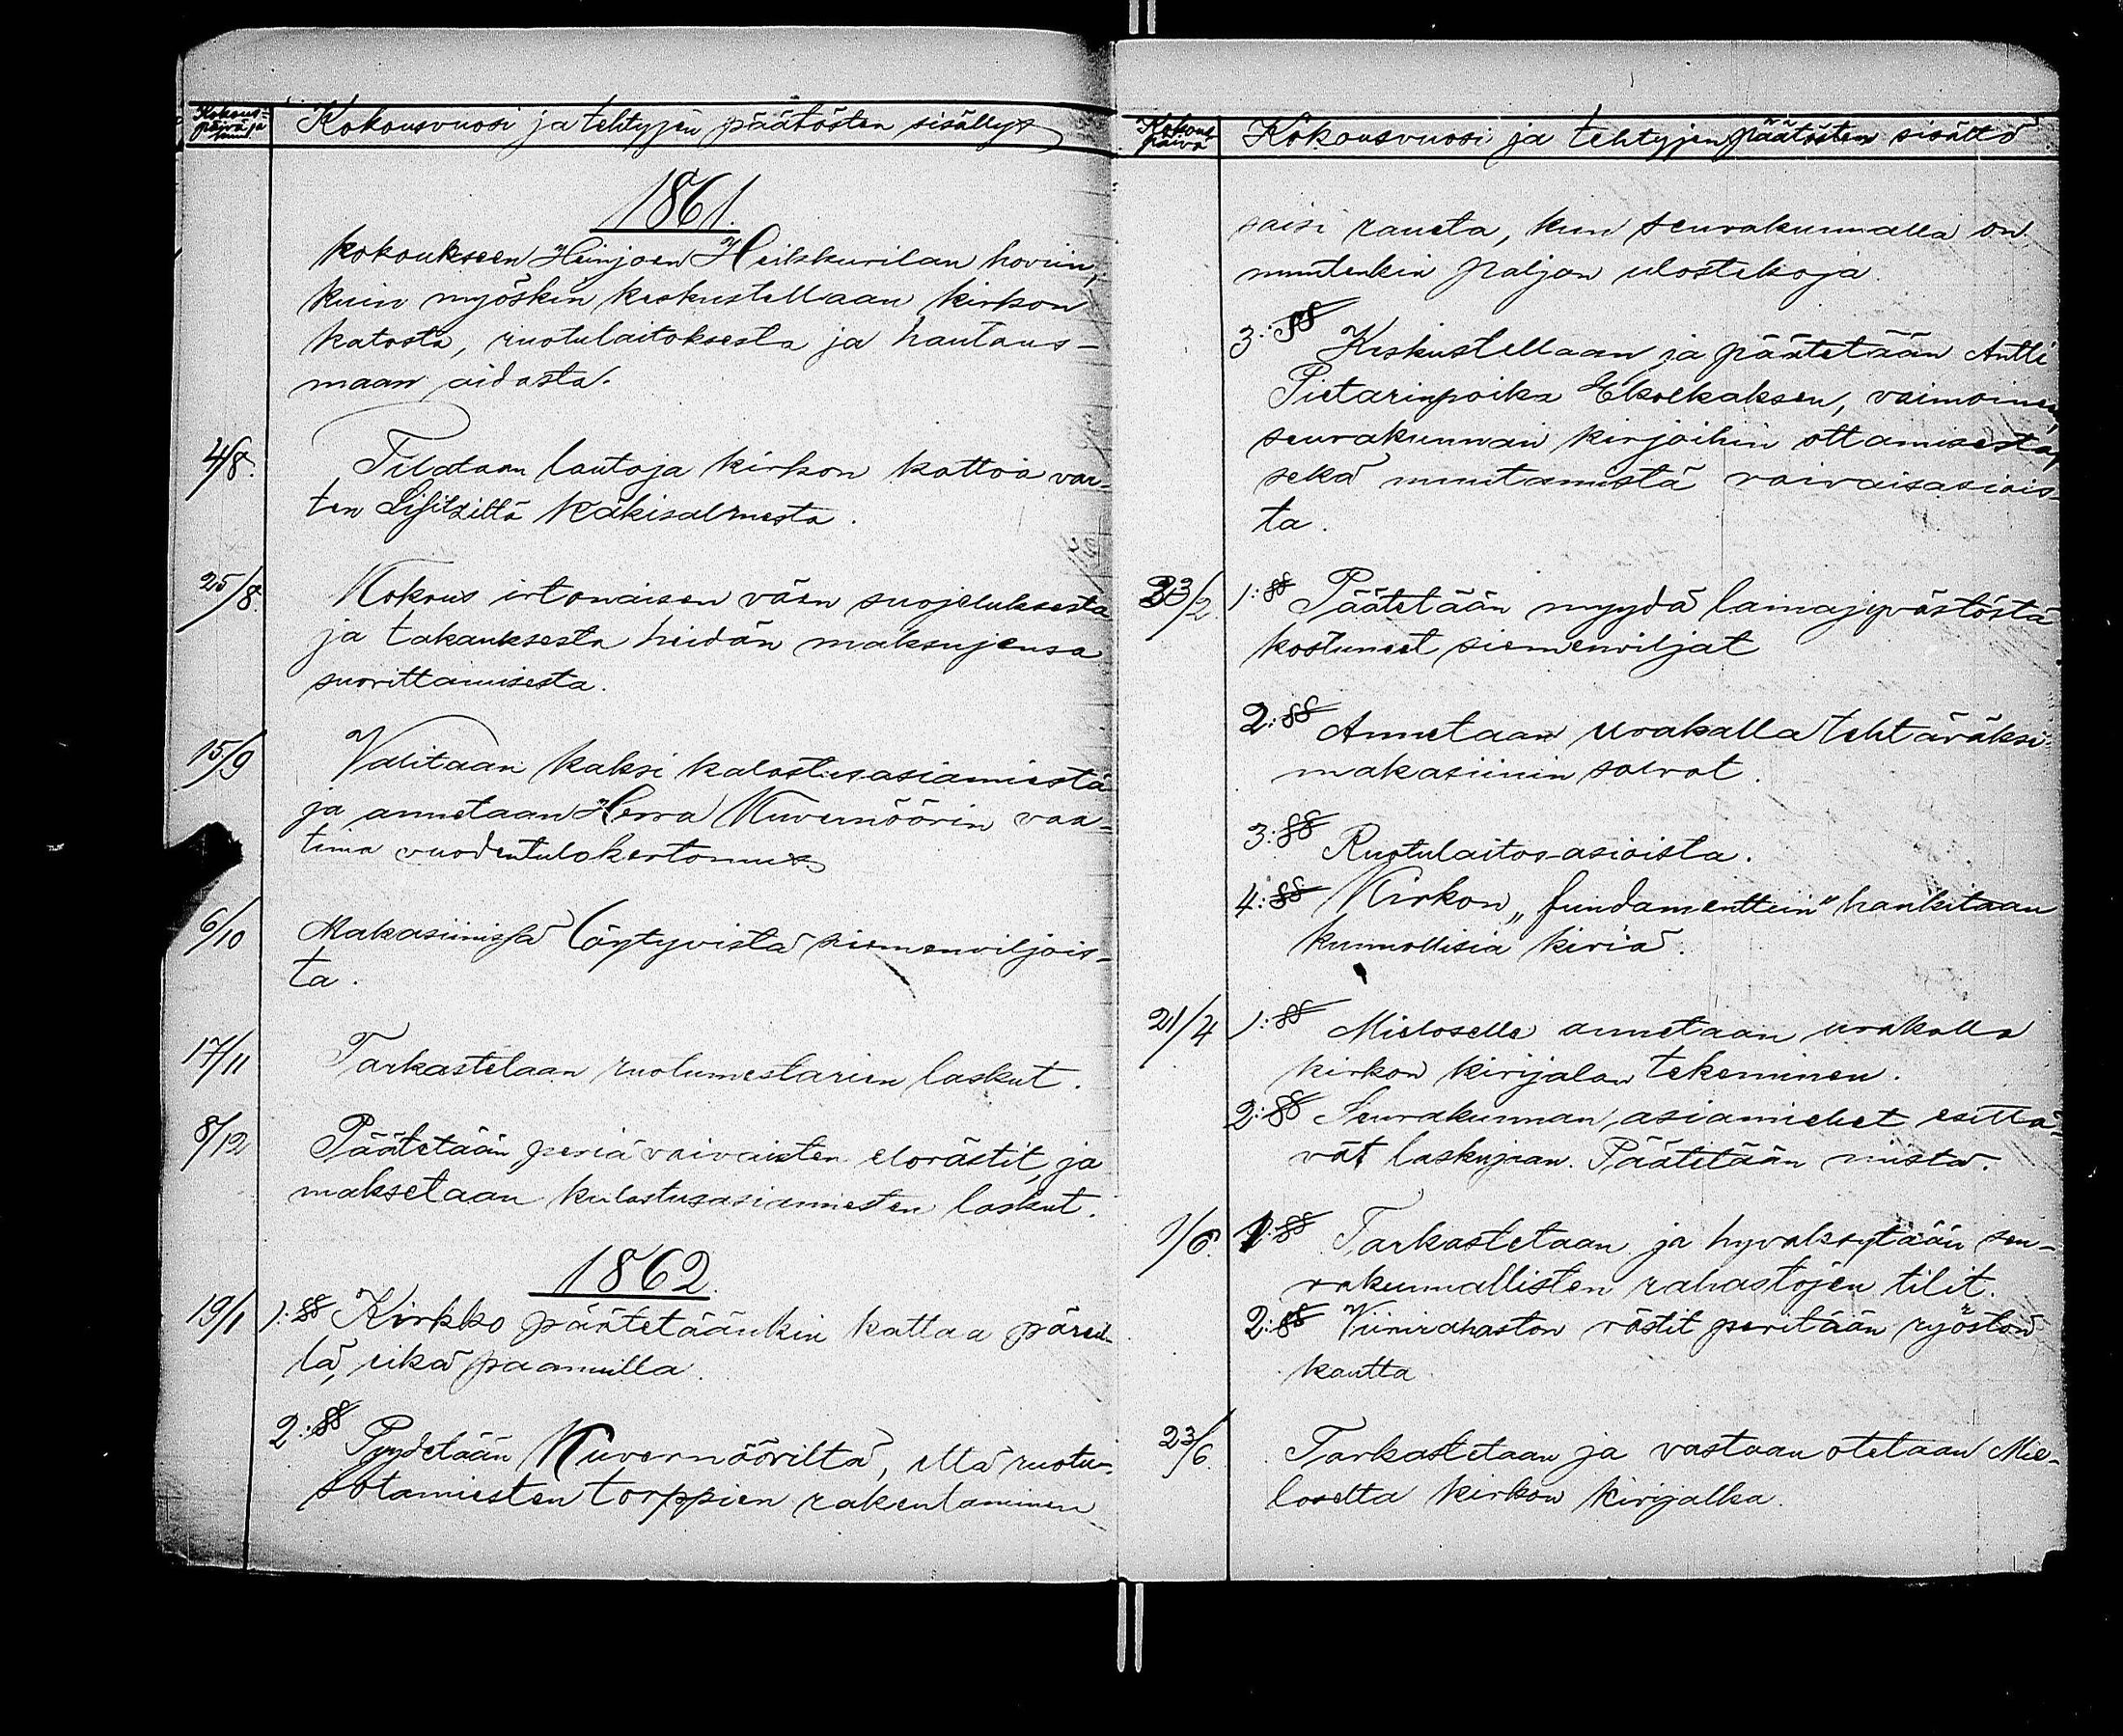 Kokous-
päivä ja
Kokousvuosi ja tehtyjen päätösten sisällys
1861.
kokoukseen Heinjoen Heikkurilan hoviin,
kuin myöskin keskustellaan kirkon
katosta, ruotulaitoksesta ja hautaus-
maan aidasta.
4/8. Tilataan lautoja kirkon kattoa var-
ten Käkisalmesta.
25/8. Kokous irtonaisen väen suojeluksesta
ja takauksesta heidän maksujensa
suorittamisesta.
15/9 Valitaan kaksi kalastusasiamiestä
ja annetaan Herra Kuvernöörin vaa-
tima vuodentulokertomus
6/10 Makasiinissa löytyvistä siemenviljois-
ta.
17/11 Tarkastelaan ruotumestarien laskut.
8/12 Päätetään periä vaivaisten elorästit, ja
maksetaan kulastusasiamiesten laskut.
1862.
19/1 1:§§ Kirkko päätetäänkin kattaa päreil-
lä, eikä paanuilla.
2:§§ Pyydetään Kuvernööriltä, että ruotu-
sotamiesten torppien rakentaminen
Kokous
päivä
Kokousvuosi ja tehtyjen päätösten sisältö
saisi raueta, kun seurakunnalla on
muutenkin paljon ulostekoja.
3:§§ Keskustellaan ja päätetään Antti
Pietarinpoika vaimoineen,
seurakunnan kirjoihin ottamisesta,
sekä muutamista vaivaisasiois-
ta.
23/2. 1:§§ Päätetään myydä lainajyvästöstä
kostuneet siemenviljat
2:§§ Annetaan urakalla tehtäväksi
makasiinin salvot.
3:§§ Ruotulaitos-asioista.
4:§§ Kirkon „fundamenttiin" hankitaan
kunnollisia kiviä.
21/4 1:§§ Mieloselle annetaan urakalla
kirkon kirijalan tekeminen.
2:§§ Seurakunnan asiamiehet esittä-
vät laskujaan. Päätetään niistä.
1/6. 1:§§ Tarkastetaan ja hyväksytään seu-
rakunnallisten rahastojen tilit.
2:§§ Viinirahaston rästit peritään ryöstön
kautta
23/6. Tarkastetaan ja vastaan otetaan Mie-
loselta kirkon kirijalka.